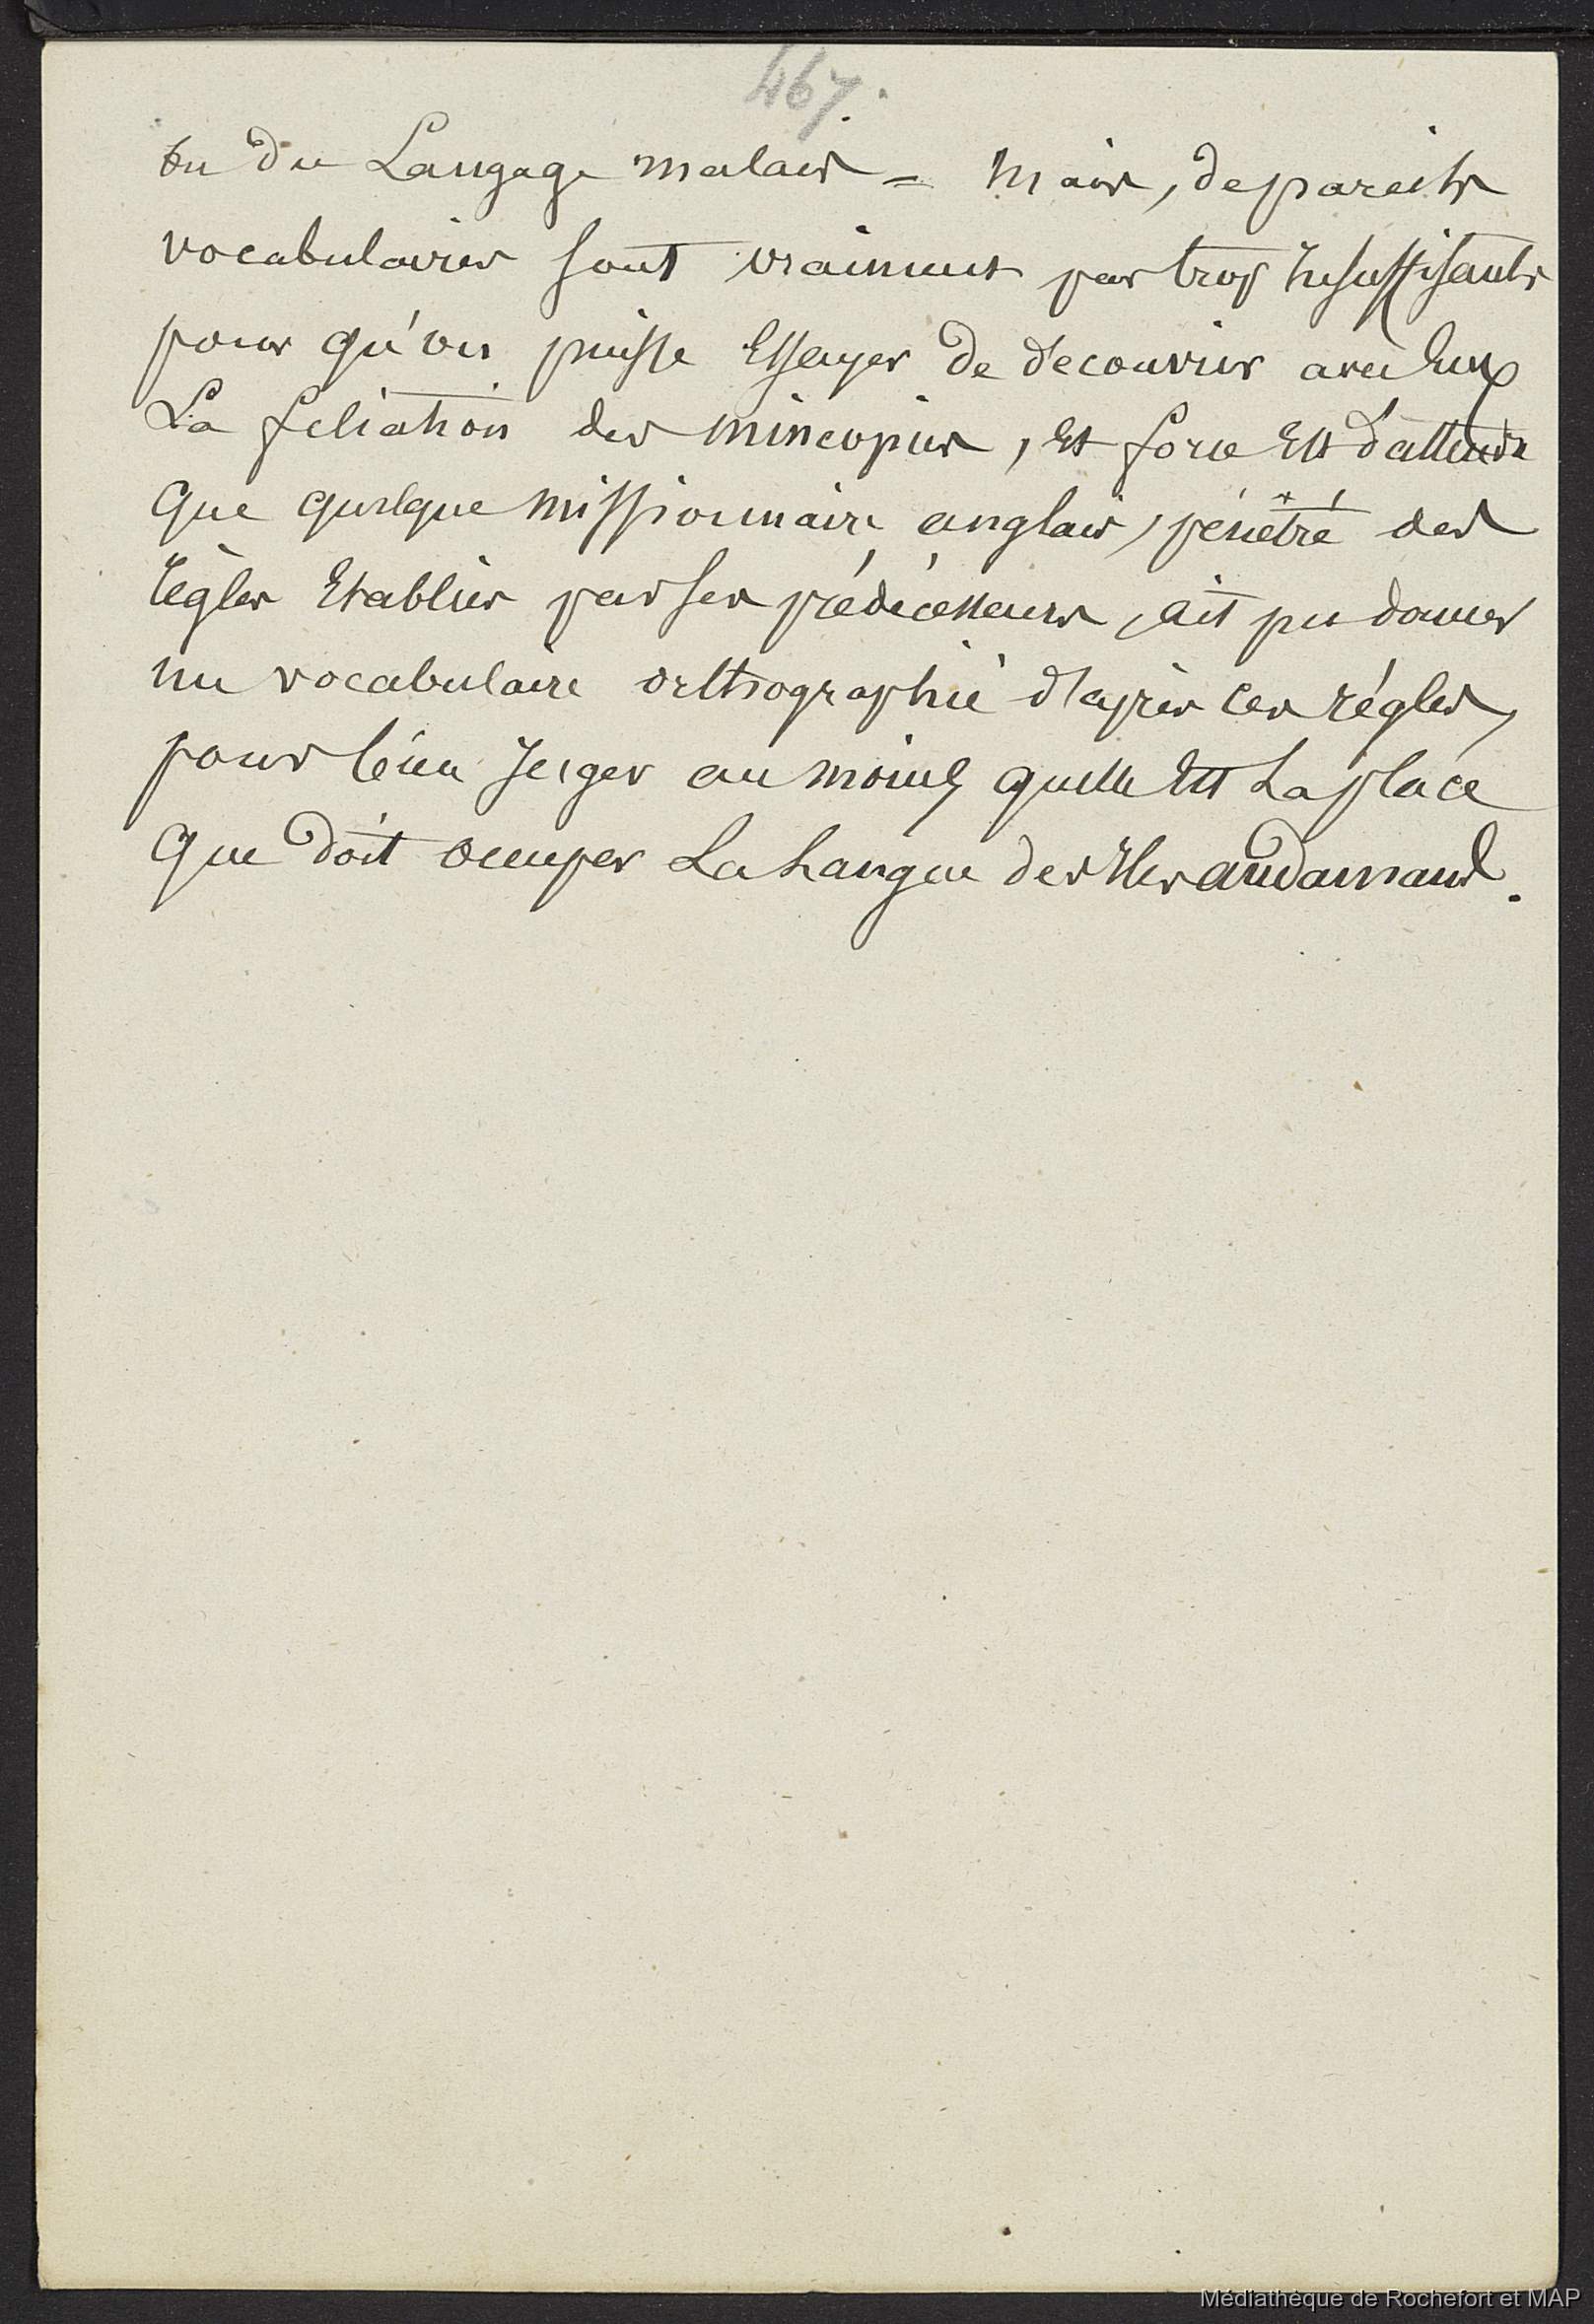 467.
ou du Langage malais = Mais, de pareils
vocabulaires sont vraiment par trop Insuffisants
pour qu'on puisse Essayer de decouvrir avec Eux
La filiation des mincopies, Et force Est d'attendre
que quelque missionnaire anglais, pénétré des
règles Etablies par ses prédécesseurs, ait pu donner
un vocabulaire orthographié d'après ces régles,
pour bien Juger au moins quelle Est La place
que doit occuper La Langue des Iles andamans.
Médiathèque de Rochefort et MAP